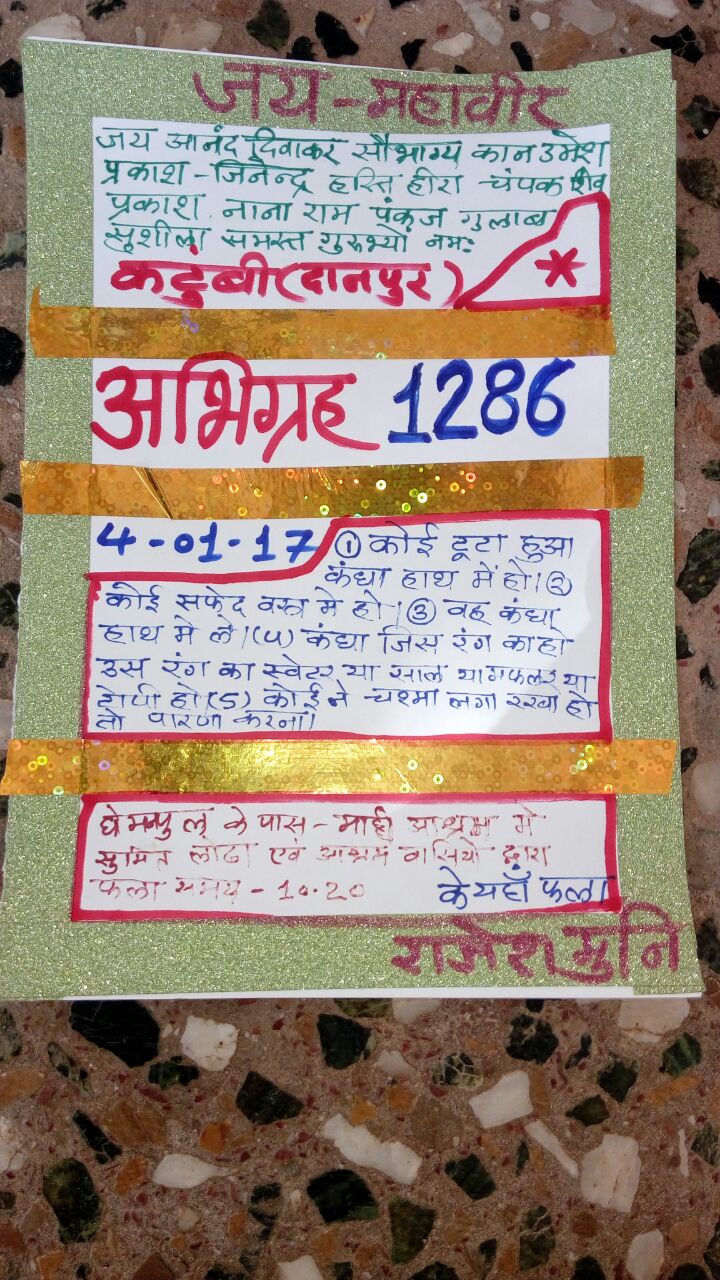 जय-महावीर
जय आनंद दिवाकर सौभाग्य कान उमेश
प्रकाश-जिनेन्द्र हस्ति हीरा चंपक शिव
प्रकाश नाना राम पंकज गुलाब
सुशीला समस्त गुरुभ्यो नमः
कटुंबी(दानपुर)
*
अभिग्रह 1286
4-01-17 ① कोई टूटा हुआ
कंघा हाथ में हो। ②
कोई सफेद वस्त्र मे हो। ③ वह कंघा
हाथ मे ले। (4) कंघा जिस रंग का हो
उस रंग का स्वेटर या साल या मफलर या
टोपी हो (5) कोई ने चश्मा लगा रखा हो
तो पारणा करना।
के पास - माही आश्रम मे
सुमित लोढा एवं आश्रम वासियो द्वारा
फला समय - 10.20 के यहाँ फला
रामेश मुनि